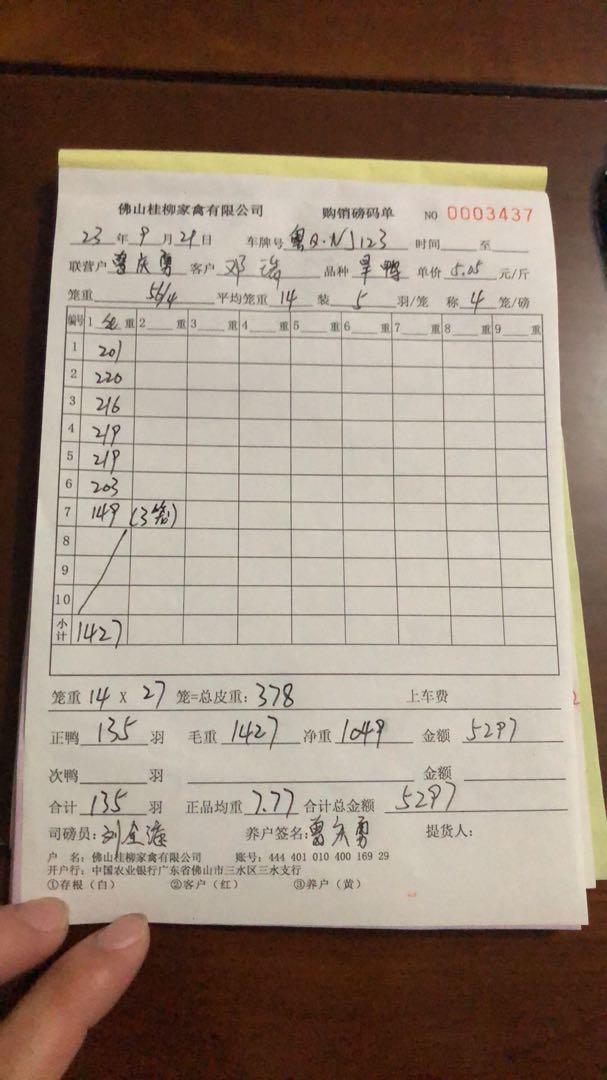 佛山桂柳家禽有限公司 购销磅码单 NO 0003437
23年9月29日 车牌号 粤Q·NJ123 时间 至
联营户 曾庆勇 客户 邓 品种 旱鸭 单价 5.05 元/斤
笼重 56/4 平均笼重 14 装 5 羽/笼 称 4 笼/磅
编号 1 重 2 重 3 重 4 重 5 重 6 重 7 重 8 重 9 重
1 201
2 220
3 216
4 219
5 219
6 203
7 149 (3笼)
8
9
10
小计 1427
笼重 14 X 27 笼=总皮重: 378 上车费
正鸭 135 羽 毛重 1427 净重 1049 金额 5297
次鸭 羽 金额
合计 135 羽 正品均重 7.77 合计总金额 5297
司磅员: 刘全 养户签名: 曾庆勇 提货人:
户 名: 佛山桂柳家禽有限公司 账号: 444 401 010 400 169 29
开户行: 中国农业银行广东省佛山市三水区三水支行
①存根（白） ②客户（红） ③养户（黄）